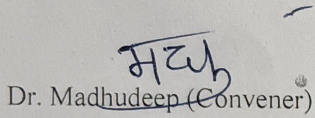 मधु
Dr. Madhudeep (Convener)